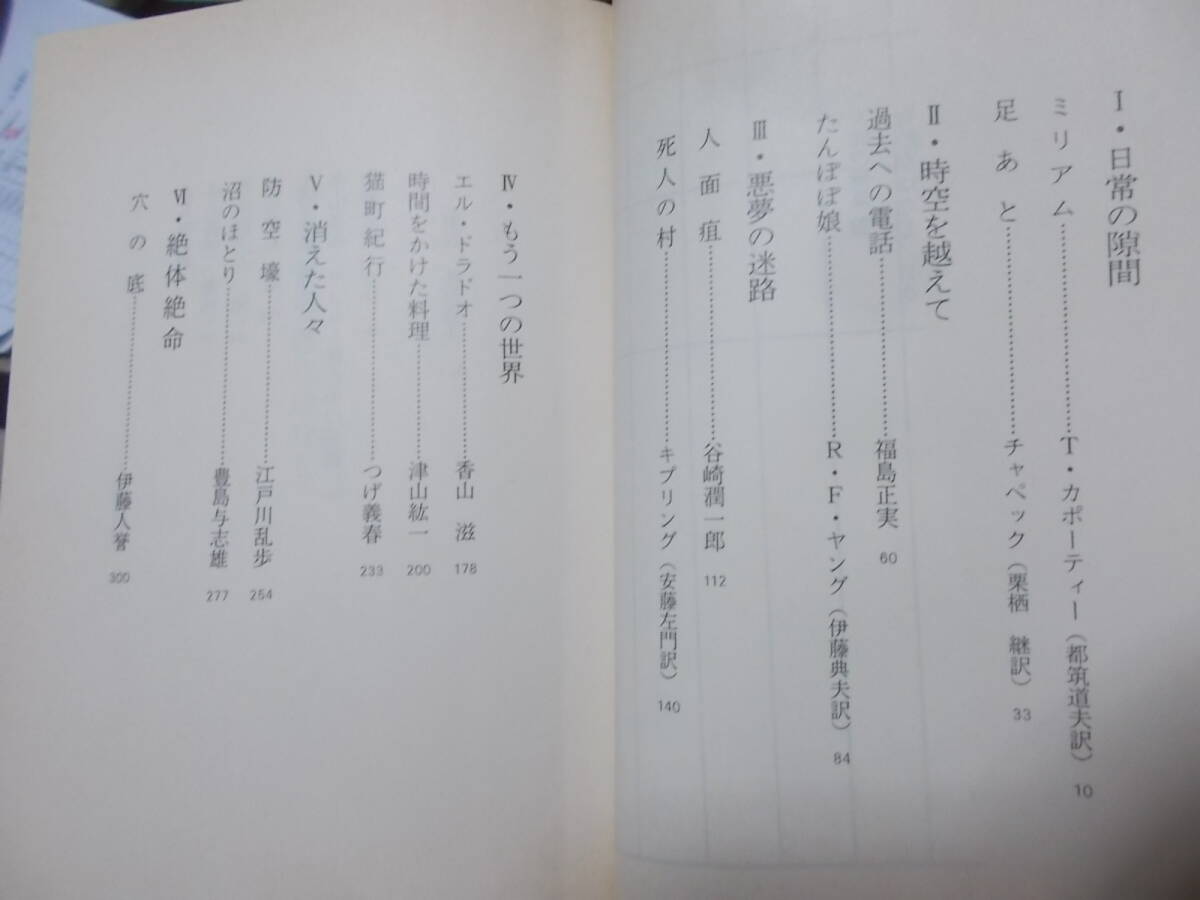 Ⅰ・日常の隙間
ミリアム…………T・カポーティー(都筑道夫訳) 10
足あと…………チャペック(栗栖 継訳) 33
Ⅱ・時空を越えて
過去への電話…………福島正実 60
たんぽぽ娘…………R・F・ヤング(伊藤典夫訳) 84
Ⅲ・悪夢の迷路
人面疽…………谷崎潤一郎 112
死人の村…………キプリング(安藤左門訳) 140
Ⅳ・もう一つの世界
エル・ドラドオ…………香山 滋 178
時間をかけた料理…………津山紘一 200
猫町紀行…………つげ義春 233
Ⅴ・消えた人々
防空壕…………江戸川乱歩 254
沼のほとり…………豊島与志雄 277
Ⅵ・絶体絶命
穴の底…………伊藤人誉 300